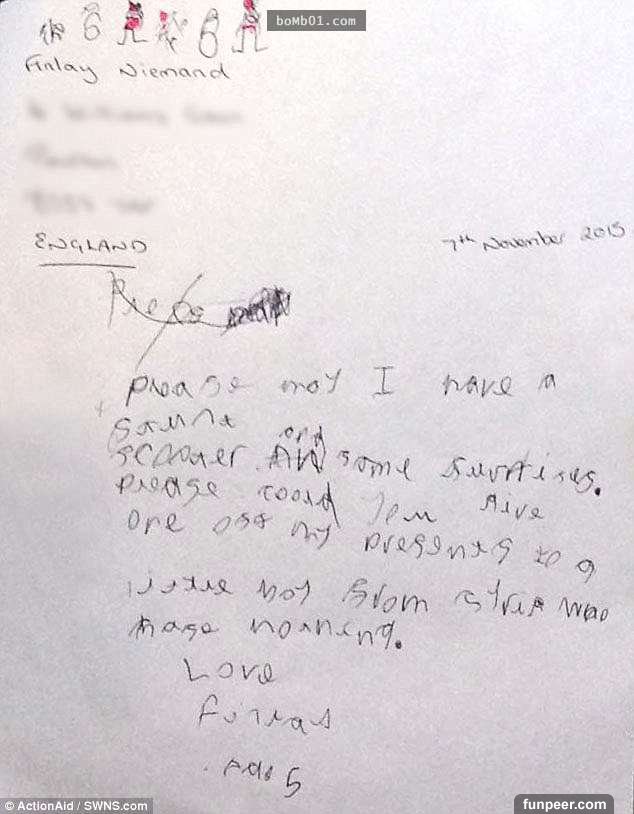 boMb01.com
Finlay Niemand
ENGLAND
7th November 2015
please may I have a
stunt
scooter and some surprises.
please could you give
one off my presents to a
little boy from Syria who
have nothing.
Love
Finlay
Age 5
© ActionAid / SWNS.com
funpeer.com